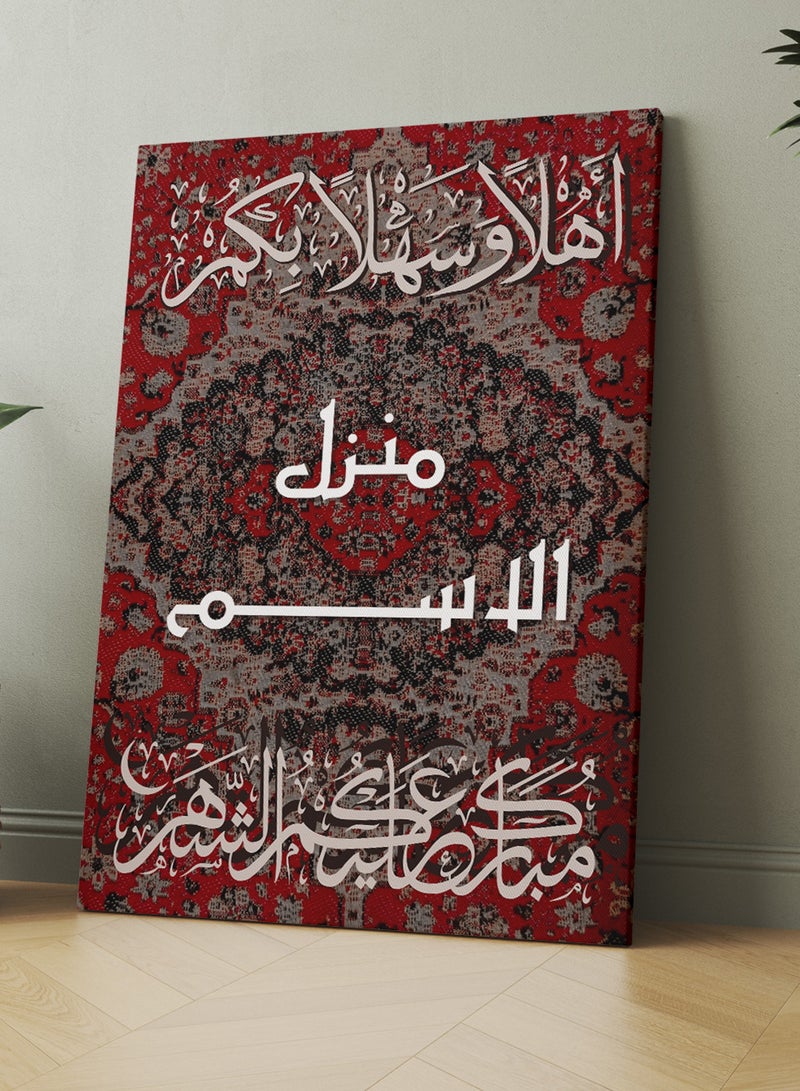 أَهْلًا وَسَهْلًا بِكُمْ
منزل
الاسم
مُبَارَكٌ عَلَيْكُمُ الشَّهْرُ